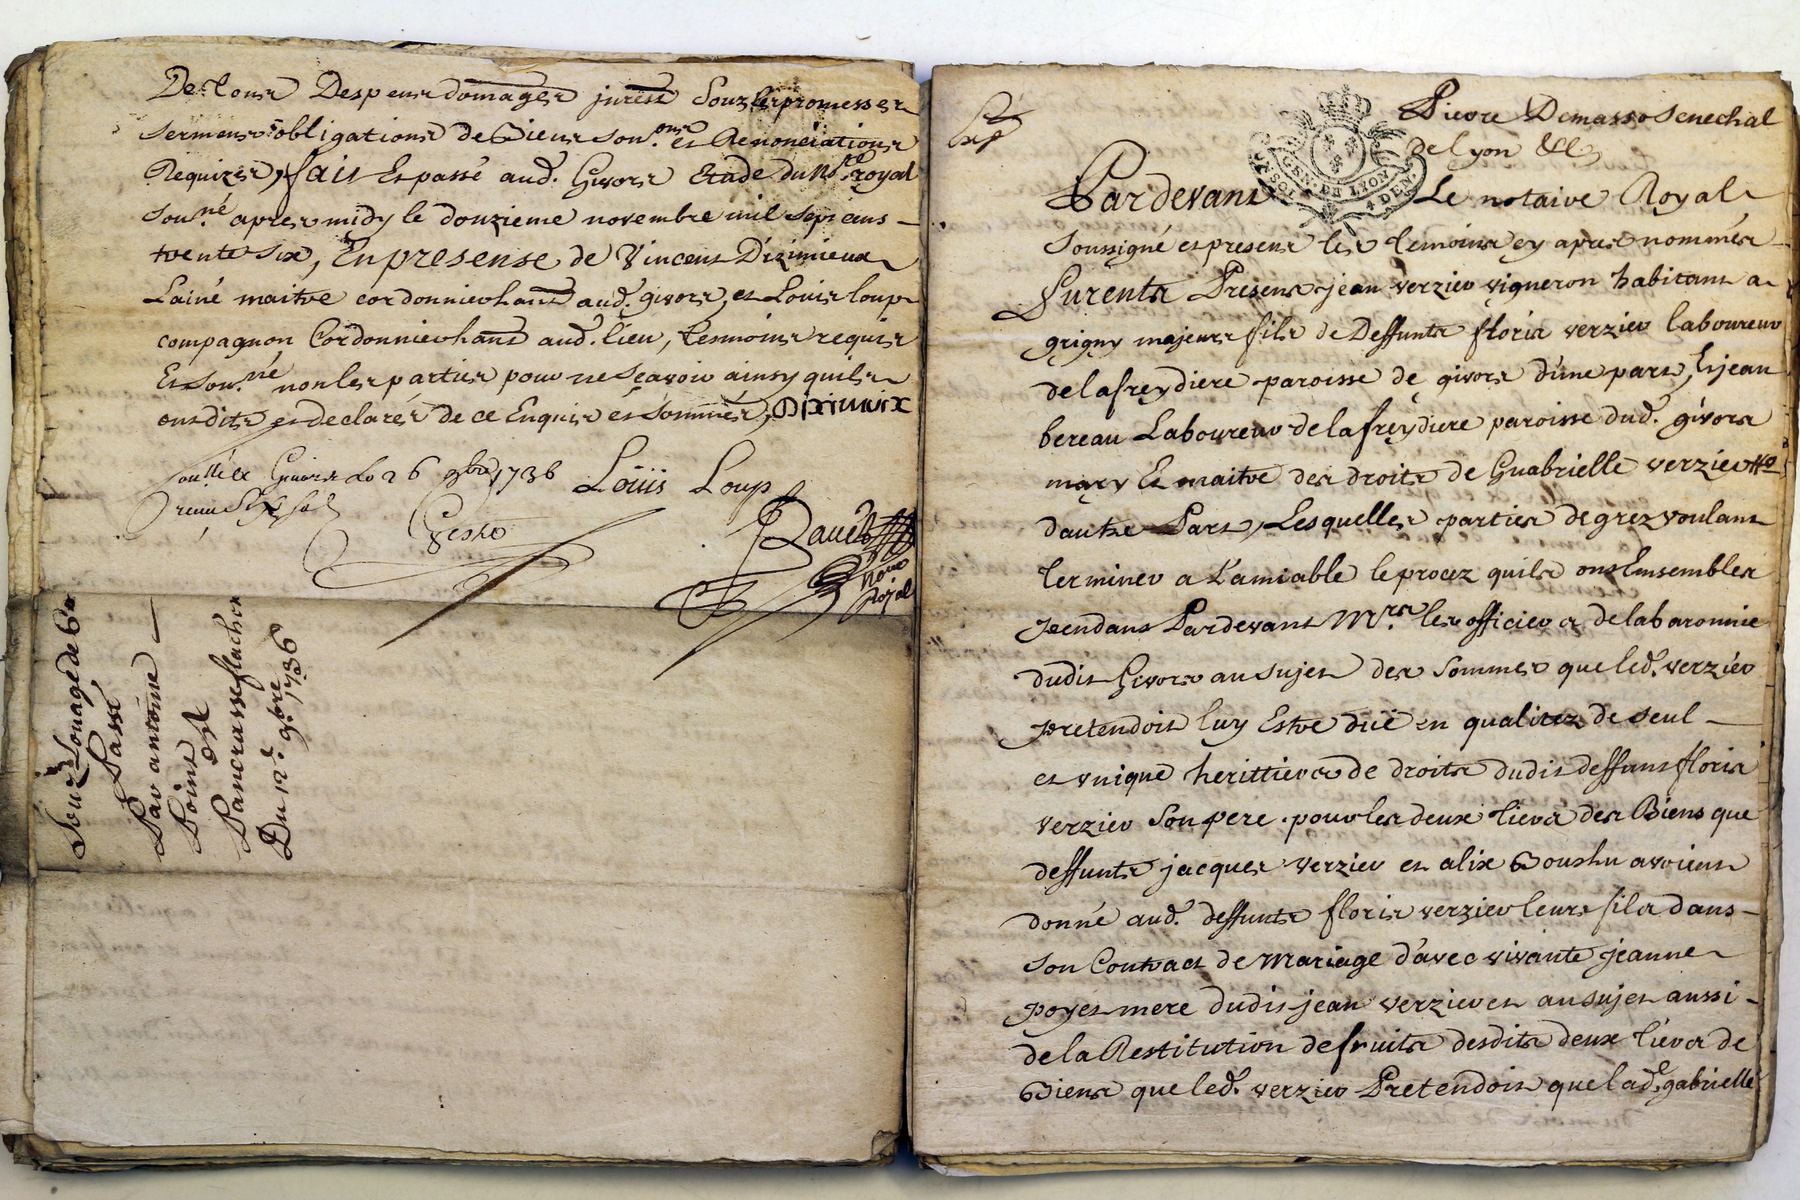 De tous Despens domages jurēst Souz les promesses
sermens obligations de Biens son.ons et Renonciations
Requizes, fait Et passé aud. Givors Etude du Nre royal
Sou.né apres midy le douzieme novembre mil sept cens
trente Six, En presense de Vincent Dizimieux
Lainé maitre cordonnier hant aud. givors, et Louis loup
compagnon Cordonnier hant aud. lieu, tesmoins requis
Et Sou.né non les parties pour ne Sçavoir ainsy quils
ont dits et declarés de ce Enquis et Sommés, Diximieux
Givors Le 26 9bre 1736 Loüis Loup
Gesse
Nore
Royal
Souz Louage de
Passé
Par antoine
Point
Pancrasse flachier
Du 12e 9bre 1736
Pierre Demasso Senechal
de Lyon &&
GEN. DE LYON
Pardevant Le notaire Royal
Soussigné et presens les temoins cy apres nommés
Furents Présens jean verzier vigneron habitant a
grigny majeurs fils de Deffunts floris verzier laboureur
de la freydiere paroisse de givors d'une part, Et jean
bereau Laboureur de la freydiere paroisse dud. givors
mary Et maitre des droits de Guabrielle verzier
dautre Part, Lesquelles parties de grez voulant
terminer a L'amiable le procez quils ont Ensembles
pendant Pardevant Mrs les officiers de la baronnie
dudit Givors au sujet des Sommes que led. verzier
pretendoit luy Estre düe en qualitez de seul
et unique herittiers de droits dudit deffunt floris
verzier Son pere pour les deux tiers des Biens que
deffunts jacques verzier et alix Boushu avoient
donné aud. deffunts floris verzier leurs fils dans
Son Contract de Mariage d'avec vivante jeanne
poyet mere dudit jean verzier et au sujet aussi
de la Restitution de fruits desdits deux tiers de
Biens que led. verzier Pretendoit que lade. gabrielle